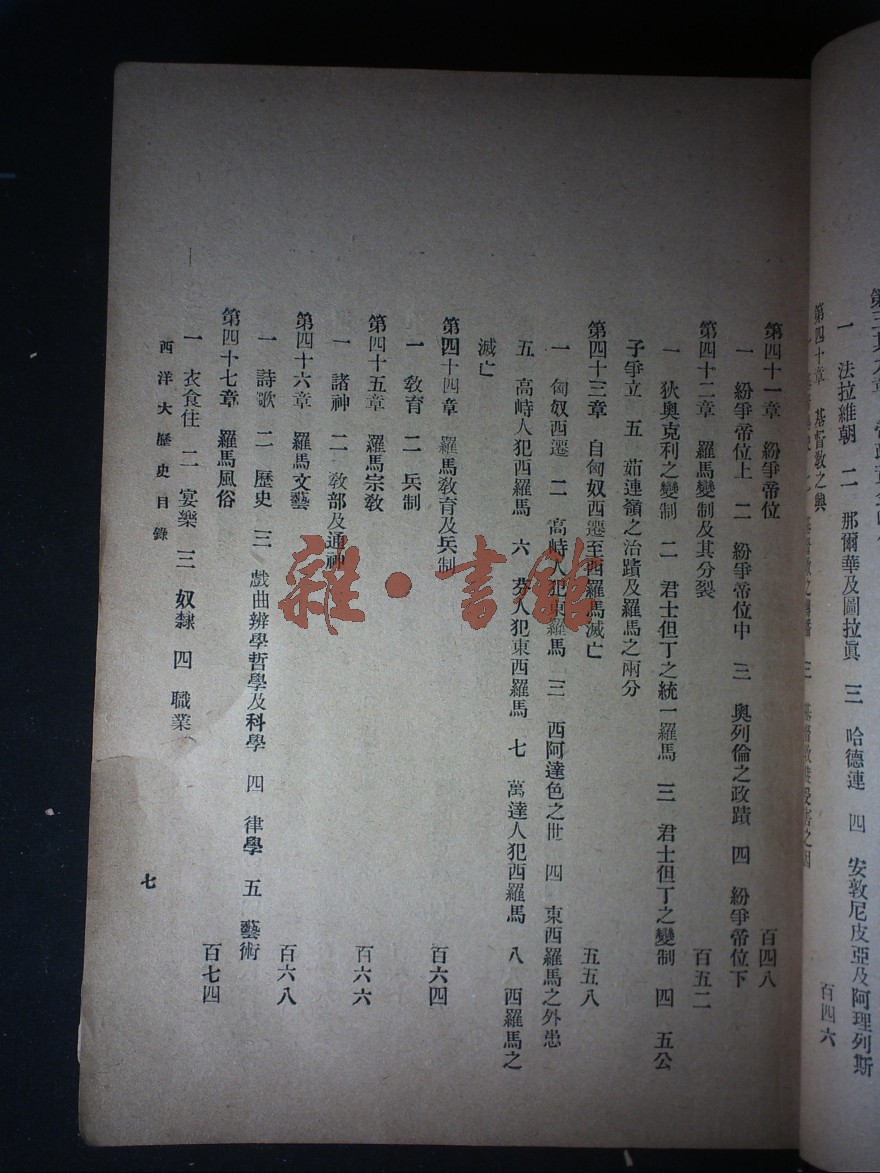 一　法拉維朝　二　那爾華及圖拉眞　三　哈德連　四　安敦尼皮亞及阿理列斯
第四十章　基督教之興　百四六
第四十一章　紛爭帝位　百四八
一　紛爭帝位上　二　紛爭帝位中　三　奧列倫之政蹟　四　紛爭帝位下
第四十二章　羅馬變制及其分裂　百五二
一　狄奧克利之變制　二　君士但丁之統一羅馬　三　君士但丁之變制　四　五公
子爭立　五　茹連嶺之治蹟及羅馬之兩分
第四十三章　自匈奴西遷至西羅馬滅亡　五五八
一　匈奴西遷　二　高峙人犯東羅馬　三　西阿達色之世　四　東西羅馬之外患
五　高峙人犯西羅馬　六　芬人犯東西羅馬　七　萬達人犯西羅馬　八　西羅馬之
滅亡
第四十四章　羅馬敎育及兵制　百六四
一　敎育　二　兵制
第四十五章　羅馬宗敎　百六六
一　諸神　二　敎部及通神
第四十六章　羅馬文藝　百六八
一　詩歌　二　歷史　三　戲曲辨學哲學及科學　四　律學　五　藝術
第四十七章　羅馬風俗　百七四
一　衣食住　二　宴樂　三　奴隸　四　職業
西洋大歷史目錄　七
雜·書館